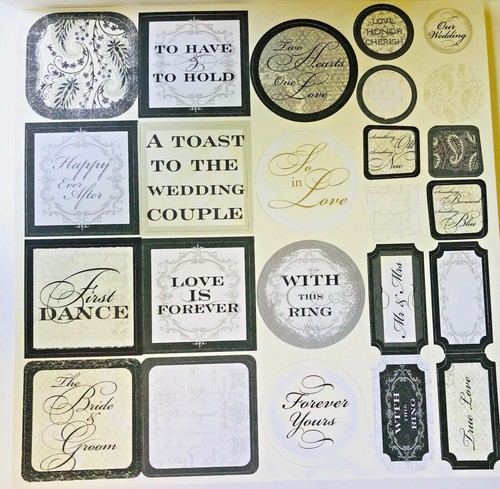 TO HAVE
&
TO HOLD
Two
Hearts
One
Love
LOVE
HONOR
CHERISH
Our
Wedding
Happy
Ever
After
A TOAST
TO THE
WEDDING
COUPLE
So
in
Love
Something Old
Something
New
Something
Borrowed
Something
Blue
First
DANCE
LOVE
IS
FOREVER
WITH
THIS
RING
Mr & Mrs
The
Bride
&
Groom
Forever
Yours
WITH
THIS
RING
True Love